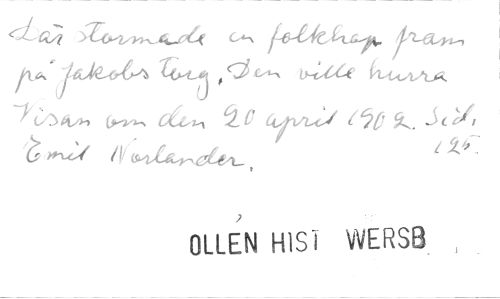 Där stormade en folkhop fram
på Jakobs torg. Den ville hurra
Visan om den 20 april 1902. Sid.
Emil Norlander. 125.
OLLÉN HIST WERSB